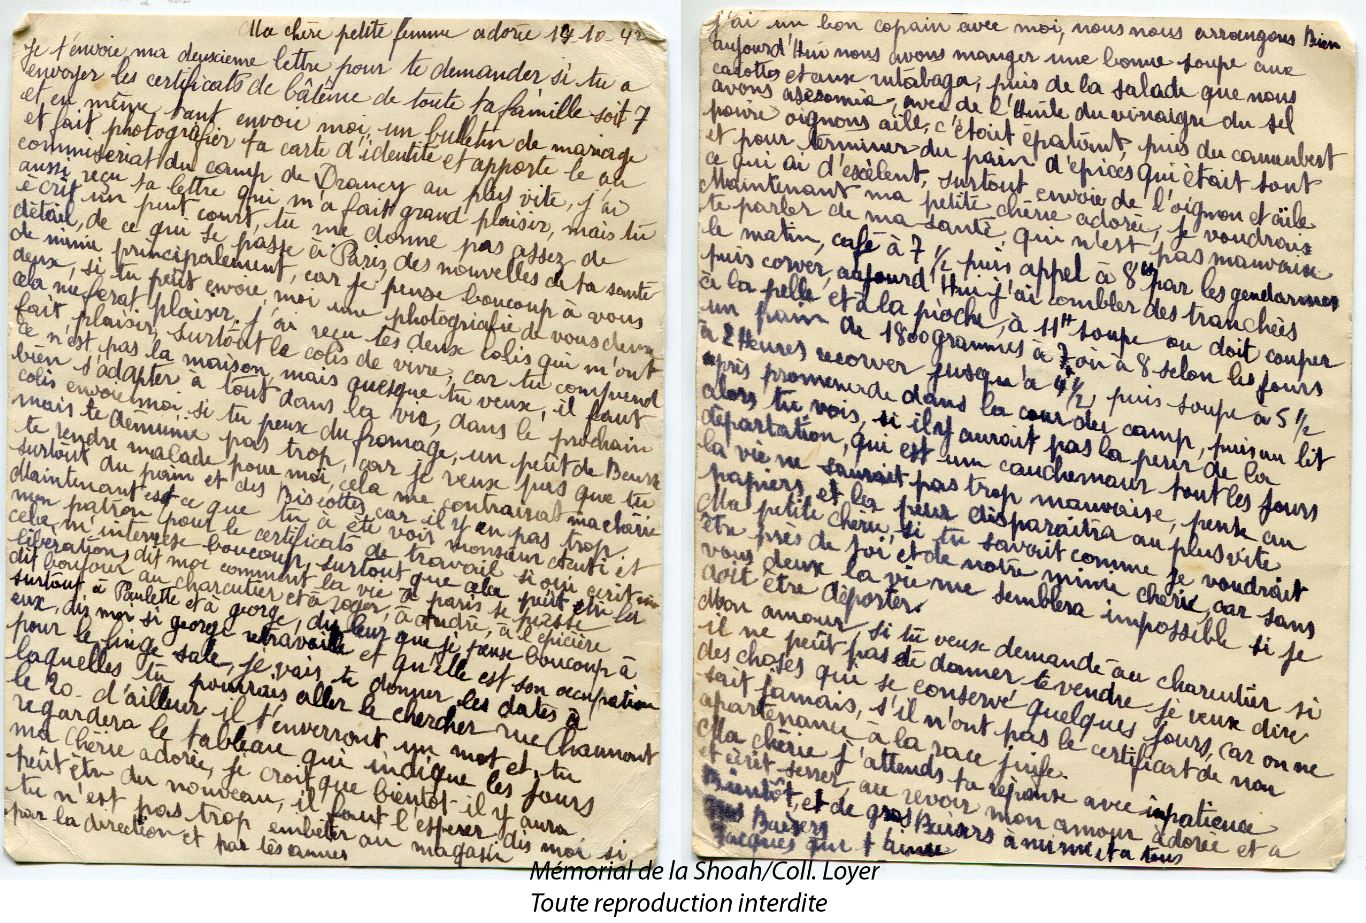 Ma chère petite femme adorée 19 10 42
Je t'envoie, ma deuxieme lettre pour te demander si tu a
envoyer les certificats de bâtême de toute ta famille soit 7
et en même tant envoie moi, un bulletin de mariage
et fait photografier ta carte d'identité et apporte le au
commiseriat du camp de Drancy au plus vite, j'ai
aussi reçu ta lettre qui m'a fait grand plaisir, mais tu
ecrit un peut court, tu me donne pas assez de
détail, de ce qui se passe à Paris, des nouvelles de ta santé
de mimie principalement, car je pense beaucoup à vous
deux, si tu peut envoie, moi une photografie de vous deux
cela me ferat plaisir. j'ai reçu tes deux colis qui m'ont
fait plaisir, surtout le colis de vivre, car tu comprend
ce n'est pas la maison, mais quesque tu veux, il faut
bien s'adapter à tout dans la vie, dans le prochain
colis envoie moi, si tu peux du fromage, un petit de Beurre
mais te démunie pas trop, car je veux pas que tu
te rendre malade pour moi, cela me contrairait ma cherie
surtout du pain et des Biscottes car il y en pas trop.
Maintenant est ce que tu à été vois monsieur et
mon patron pour le certificats de travail si oui ecrit
cela m'interesse beaucoup, surtout que cela peut etre la
libération, dit moi comment la vie a paris se passe
dit bonjour au charcutier et à roger, à andré, à l'epicière
surtout à Paulette et à george, dis leur que je pense beaucoup à
eux, dis moi si george retravaille et qu'elle est son occupation
pour le linge sale, je vais te donner les dates à
laquelles tu pourrais aller le chercher rue Chaumont
le 20. d'ailleur il t'enverront un mot et tu
regardera le tableau qui indique les jours
ma chérie adorée, je croit que bientôt il y aura
peut être du nouveau, il faut l'esperer dis moi si
tu n'est pas trop embêter au magasin
par la direction et par les
j'ai un bon copain avec moi, nous nous arrangons Bien
aujourd'Hui nous avons manger une bonne soupe aux
carottes et aux rutabaga, puis de la salade que nous
avons asesomie, avec de l'Huile du vinaigre du sel
poivre oignons aile, c'étoit épatant, puis du camenbert
et pour terminer du pain d'epices qui était sont
ce qui ai d'exélent, surtout envoie de l'oignon et aile
Maintenant ma petite chérie adorée, je voudrais
te parler de ma santé, qui n'est pas mauvaise
le matin, café à 7 1/2 puis appel à 8H par les gendarmes
puis corver, aujourd'Hui j'ai combler des tranchées
à la pelle et à la pioche, à 11H soupe ou doit couper
un pain de 1800 grammes à 7 où à 8 selon les jours
à 2 Heures recorver jusqu'à 4 1/2, puis soupe à 5 1/2
après promenade dans la cour du camp, puis au lit
alors tu vois, si il y aurait pas la peur de la
départation, qui est un cauchemaur tout les jours
la vie ne saurait pas trop mauvaise, pense au
papiers, et la peur disparaitra au plus vite
Ma petite chérie, si tu savait comme je voudrait
être près de toi et de notre mimie chérie, car sans
vous deux la vie me semblera impossible si je
doit être déporter.
Mon amour, si tu veux demande au charcutier si
il ne peut pas te donner te vendre je veux dire
des choses qui se conservé quelques jours, car on ne
sait jamais, s'il n'ont pas le certificart de non
apartenance à la race juife.
Ma chérie j'attends ta réponse avec inpatience
et arêt-serrer, au revoir mon amour adorée et a
Bientôt, et de gros Baisers à mimie, et a tous
gros Baisers
Jacques qui t'aime
Mémorial de la Shoah/Coll. Loyer
Toute reproduction interdite